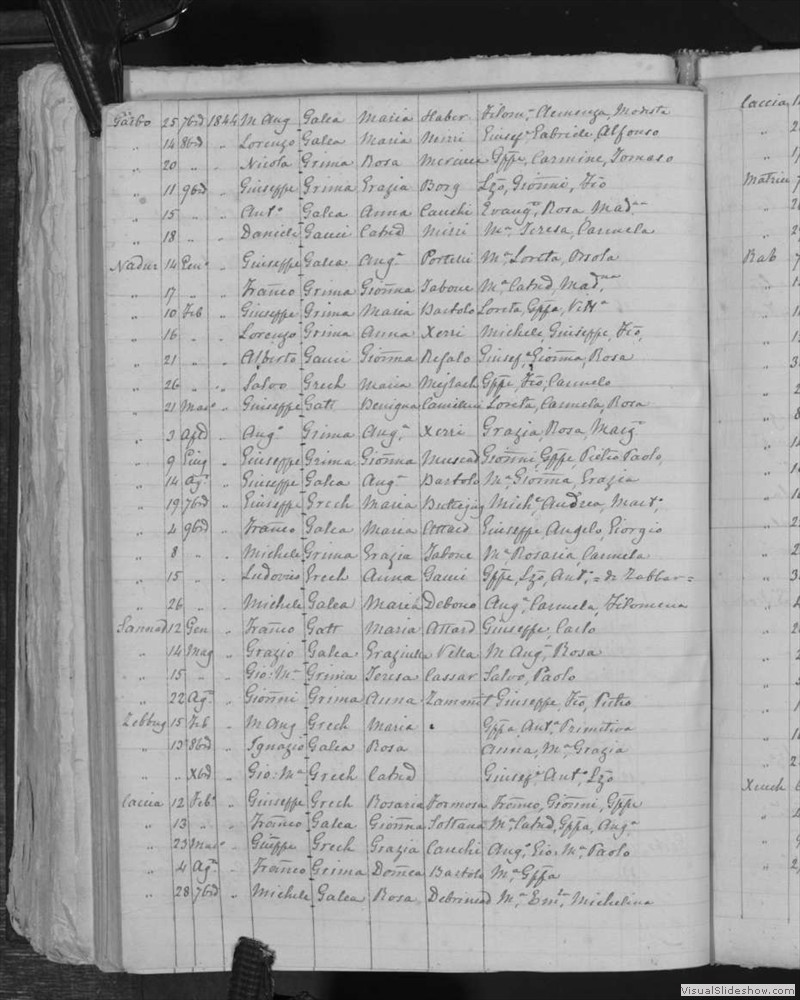 Garbo 25 76rd 1844 M Aug Galea Maria Haber Filom, Clemenza, Modesta
" 14 86rd " Lorenzo Galea Maria Mizzi Giusepᵃ Gabriele, Alfonso
" 20 " " Nicola Grima Rosa Mercieca Gpffe, Carmine, Tomaso
" 11 96rd " Giuseppe Grima Grazia Borg Lzo, Gioñni, Fco
" 15 " " Antᵒ Galea Anna Cauchi Evangᵗᵃ, Rosa, Madⁿᵃ
" 18 " Daniele Gauci Catnd Mizzi Mᵃ Teresa, Carmela
Nadur 14 Genᵒ " Giuseppe Galea Angᵃ Portelli Mᵃ Loreta, Orsola
" 17 " " Franco Grima Gioñna Tabone Mᵃ Catnd, Madⁿᵃ
" 10 Feb " Giuseppe Grima Maria Bartolo Loreta, Gpffa, Vittᵃ
" 16 " " Lorenzo Grima Anna Xerri Michele, Giuseppe, Fco,
" 21 " " Alberto Gauci Gioñna Refalo Giusefᵃ, Gioñna, Rosa
" 26 " " Salvo Grech Maria Mejlach Gpffe, Fco, Carmelo
" 21 Marᵒ " Giuseppe Gatt Benigna Camilleri Loreta, Carmela, Rosa
" 3 Aple " Angᵒ Grima Angᵃ Xerri Grazia, Rosa, Margᵗᵃ
" 9 Giug " Giuseppe Grima Gioñna Muscad Gioñni, Gpffe, Pietro Paolo,
" 14 Agᵒ " Giuseppe Galea Angᵃ Bartolo Mᵃ Gioñna, Grazia
" 19 76rd " Giuseppe Grech Maria Buttigieg Michᵉ, Andrea, Martᵒ
" 4 96rd " Franco Galea Maria Attard Giuseppe, Angelo, Giorgio
" 8 " Michele Grima Grazia Tabone Mᵃ Rosaria, Carmela
" 15 " " Ludovico Grech Anna Gauci Gpffe, Lzo, Antᵒ = di Zabbar =
" 26 " Michele Galea Maria Debono Angᵃ, Carmela, Filomena
Sannad 12 Gen " Franco Gatt Maria Attard Giuseppe, Carlo
" 14 Mag " Grazio Galea Graziulla Vella M Aug, Rosa
" 15 " " Gio: Mᵃ Grima Teresa Cassar Salvo, Paolo
" 22 Agᵒ Gioñni Grima Anna Zammit Giuseppe, Fco, Pietro
Zebbug 15 Feb " M Aug Grech Maria Gpffa, Antᵃ, Primitiva
" 13 86rd " Ignazio Galea Rosa Anna, Mᵃ Grazia
" " X6rd " Gio: Mᵃ Grech Catnd Giusefᵃ, Antᵒ, Lzo
Caccia 12 Febᵒ " Giuseppe Grech Rosaria Formosa Franco, Gioñni, Gpffe
" 13 " " Franco Galea Gioñna Soltana Mᵃ Catnd, Gpffa, Angᵃ
" 23 Marᵒ " Giuseppe Grech Grazia Cauchi Angᵒ, Gio: Mᵃ, Paolo
" 4 Agᵒ " Franco Grima Domca Bartolo Mᵃ Gpffa
" 28 76rd " Michele Galea Rosa Debrincad Mᵃ, Emᵃ, Michelina
Caccia
Matrice
Rab
Xeuch
VisualSlideshow.com